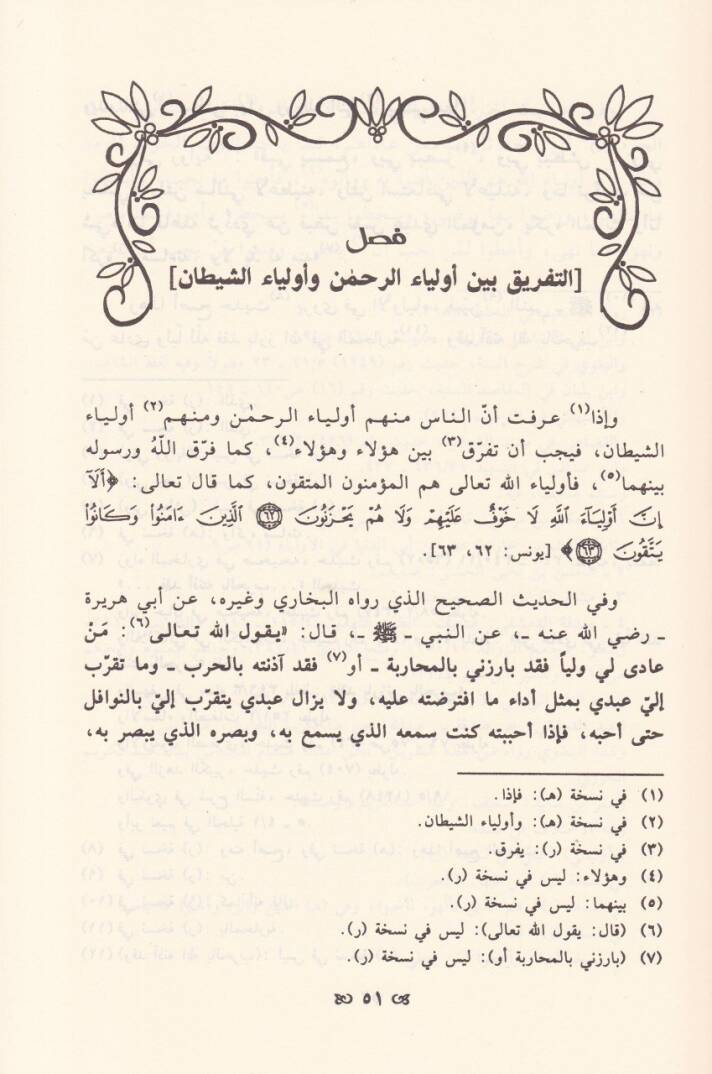 فصل
[التفريق بين أولياء الرحمٰن وأولياء الشيطان]
وإذا(١) عرفت أنّ الناس منهم أولياء الرحمٰن ومنهم(٢) أولياء
الشيطان، فيجب أن تفرّق(٣) بين هؤلاء وهؤلاء(٤)، كما فرّق اللّهُ ورسوله
بينهما(٥)، فأولياء الله تعالى هم المؤمنون المتقون، كما قال تعالى: ﴿أَلَآ
إِنَّ أَوْلِيَآءَ ٱللَّهِ لَا خَوْفٌ عَلَيْهِمْ وَلَا هُمْ يَحْزَنُونَ ۝٦٢ ٱلَّذِينَ ءَامَنُوا۟ وَكَانُوا۟
يَتَّقُونَ ۝٦٣﴾ [يونس: ٦٢، ٦٣].
وفي الحديث الصحيح الذي رواه البخاري وغيره، عن أبي هريرة
ـ رضي الله عنه ـ، عن النبي ـ ﷺ ـ، قال: «يقول الله تعالى(٦): مَنْ
عادى لي ولياً فقد بارزني بالمحاربة ـ أو(٧) فقد آذنته بالحرب ـ وما تقرّب
إليّ عبدي بمثل أداء ما افترضته عليه، ولا يزال عبدي يتقرّب إليّ بالنوافل
حتى أحبه، فإذا أحببته كنت سمعه الذي يسمع به، وبصره الذي يبصر به،
(١) في نسخة (هـ): فإذا.
(٢) في نسخة (هـ): وأولياء الشيطان.
(٣) في نسخة (ر): يفرق.
(٤) وهؤلاء: ليس في نسخة (ر).
(٥) بينهما: ليس في نسخة (ر).
(٦) (قال: يقول الله تعالى): ليس في نسخة (ر).
(٧) (بارزني بالمحاربة أو): ليس في نسخة (ر).
٥١